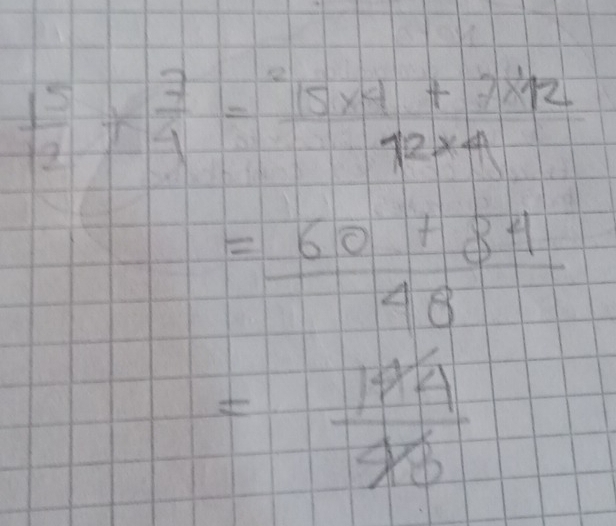 15/12 + 7/4 = 15×4 + 7×12 / 12×4
= 60 + 84 / 48
= 144 / 48